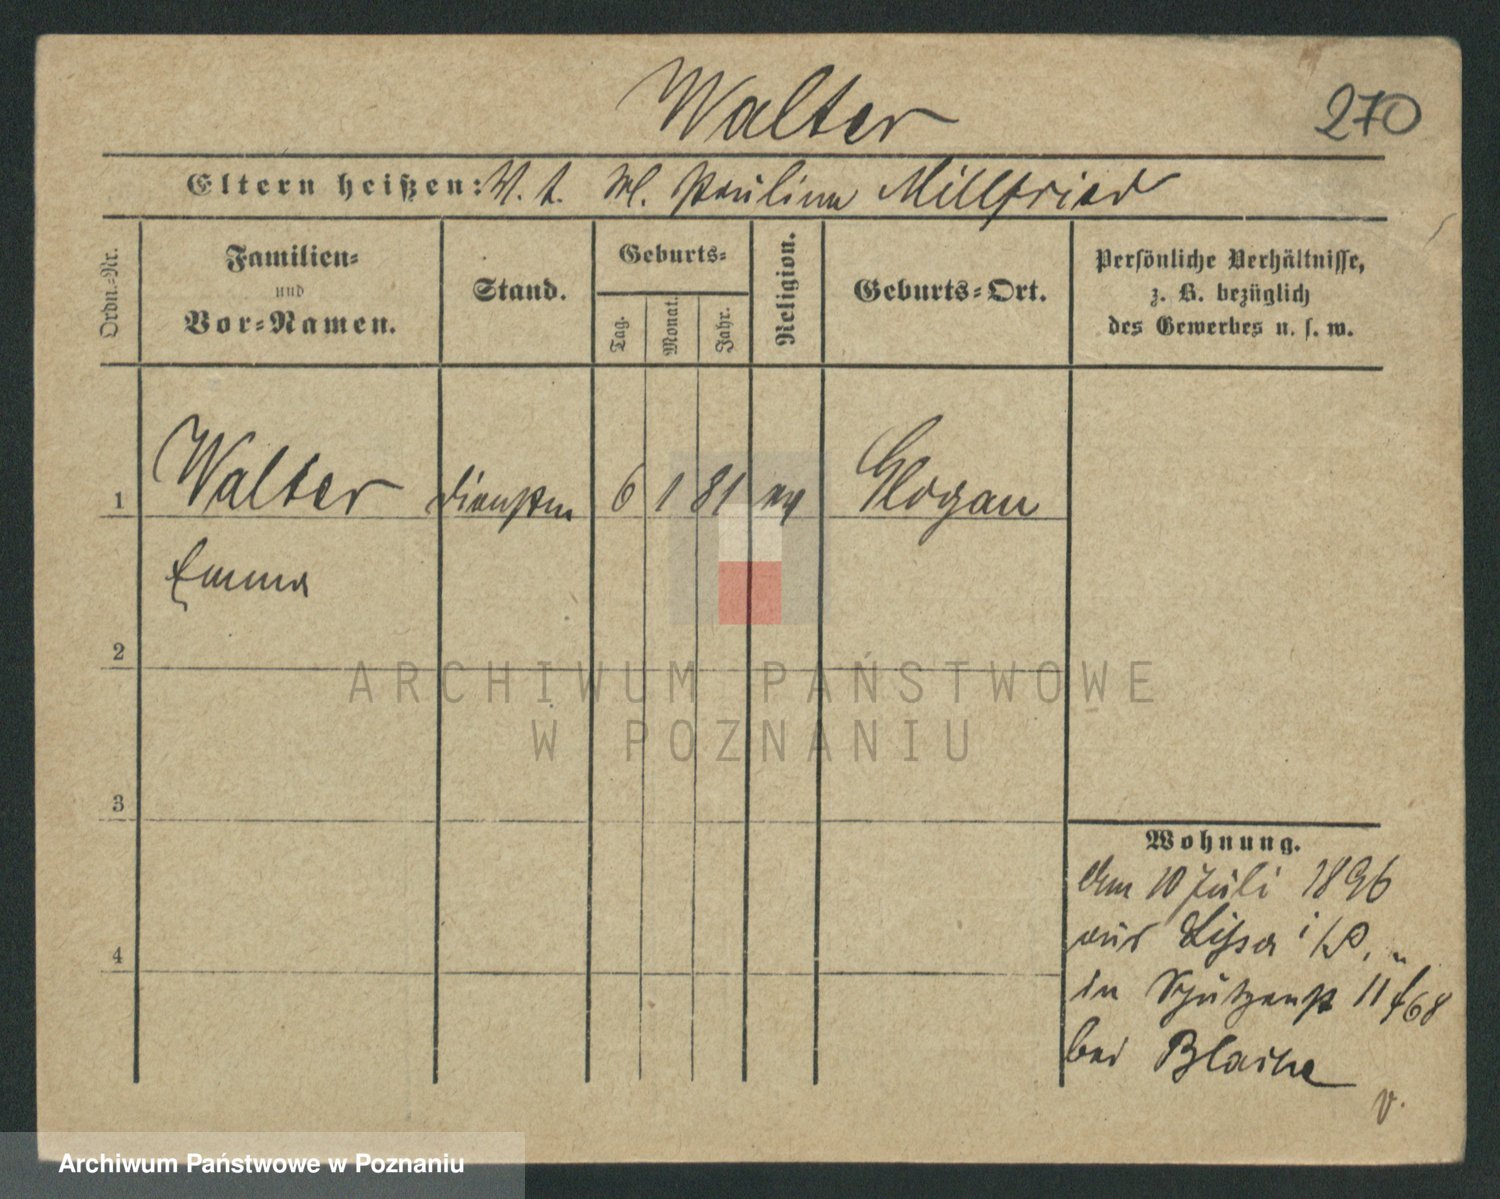 Walter
270
Eltern heißen: V. t. M. Paulina Millfried
Ordn.-Nr.
Familien-
und
Vor-Namen.
Stand.
Geburts-
Tag.
Monat.
Jahr.
Religion.
Geburts-Ort.
Persönliche Verhältnisse,
z. B. bezüglich
des Gewerbes u. s. w.
1 Walter 6 1 81 ev Glogau
Emma
2
3
4
Wohnung.
den 10 Juli 1896
aus Lissa i/P.
in Schützenst 11
bei
v.
ARCHIWUM PAŃSTWOWE
W POZNANIU
Archiwum Państwowe w Poznaniu